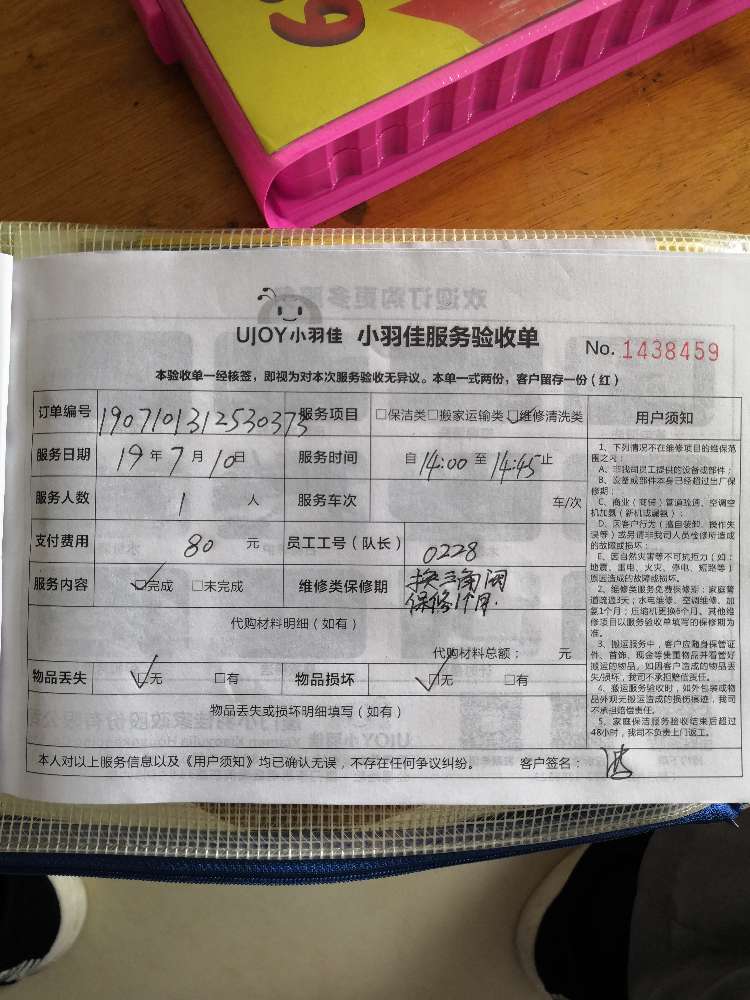 UJOY小羽佳 小羽佳服务验收单
No. 1438459
本验收单一经核签，即视为对本次服务验收无异议。本单一式两份，客户留存一份（红）
订单编号 190710131253037​3 服务项目 □保洁类□搬家运输类□维修清洗类 用户须知
服务日期 19年7月10日 服务时间 自14:00至14:45止
服务人数 1 人 服务车次 车/次
支付费用 80 元 员工工号（队长） 0228
服务内容 ☑完成 □未完成 维修类保修期 换三角阀
保修1个月.
代购材料明细（如有）
代购材料总额： 元
物品丢失 ☑无 □有 物品损坏 ☑无 □有
物品丢失或损坏明细填写（如有）
本人对以上服务信息以及《用户须知》均已确认无误，不存在任何争议纠纷。 客户签名：
1、下列情况不在维修项目的维保范
围之内：
A、非我司员工提供的设备或部件；
B、设备或部件本身已经超过出厂保
修期；
C、商业（商铺）管道疏通、空调空
机加氨（新机或漏氨）；
D、因客户行为（擅自装卸、操作失
误等）或另请非我司人员检修所造成
的故障或损坏；
E、因自然灾害等不可抗拒力（如：
地震、雷电、火灾、停电、短路等）
原因造成的故障或损坏。
2、维修类服务免费保修期：家庭管
道疏通3天；水电维修、空调维修、加
氨1个月；压缩机更换6个月，其他维
修项目以服务验收单填写的保修期为
准。
3、搬运服务中，客户应随身保管证
件、首饰、现金等贵重物品并看管好
搬运的物品。如因客户造成的物品丢
失/损坏，我司不承担赔偿责任。
4、搬运服务验收时，如外包装或物
品外观无搬运造成的损伤痕迹，我司
不承担赔偿责任。
5、家庭保洁服务验收结束后超过
48小时，我司不负责上门返工。